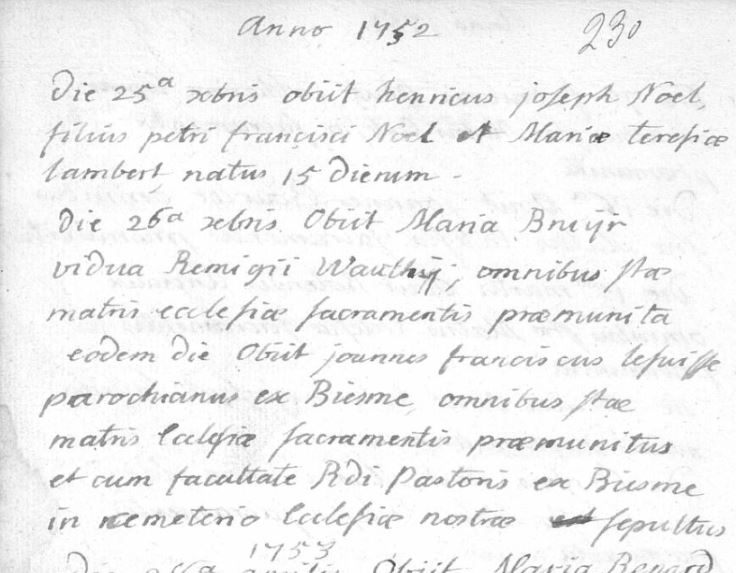 Anno 1752
230
Die 25a xbris obiit henricus joseph Noel,
filius petri francisci Noel et Mariæ teresiæ
lambert natus 15 dierum -
Die 26a xbris Obiit Maria Bruijr
vidua Remigii Wauthij, omnibus stæ
matris ecclesiæ sacramentis præmunita
eodem die Obiit joannes franciscus lesuisse
parochianus ex Biesme, omnibus stæ
matris Eclesiæ sacramentis præmunitus
et cum facultate Rdi Pastoris ex Biesme
in cemeterio Ecclesiæ nostræ sepultus
1753
Die 26a aprilis Obiit Maria Renard